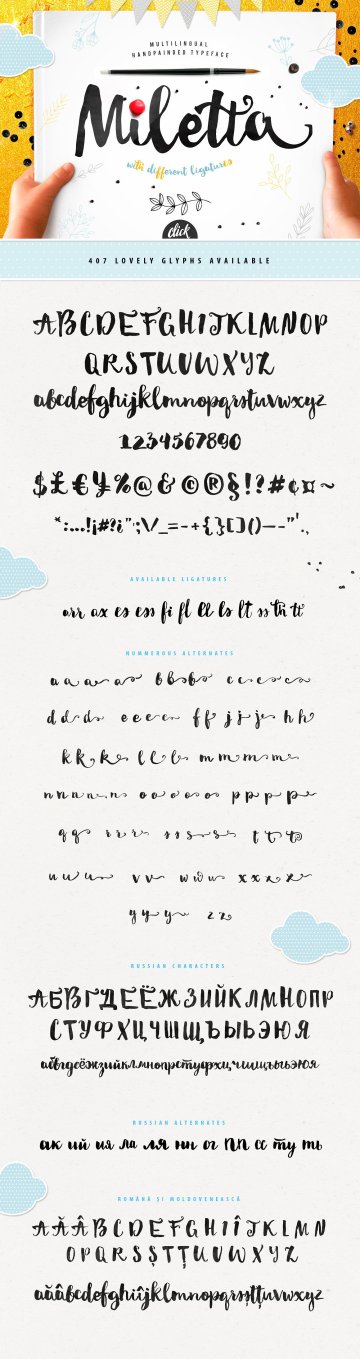 MULTILINGUAL
HANDPAINDED TYPEFACE
Miletta
with different ligatures
click
407 LOVELY GLYPHS AVAILABLE
ABCDEFGHIJKLMNOP
QRSTUVWXYZ
abcdefghijklmnopqrstuvwxyz
1234567890
$£€¥%@&©®§!?#¢¤~
AVAILABLE LIGATURES
NUMMEROUS ALTERNATES
d d d d
e e e e
f f j j j h h
k k k l l l m m m m
p p p p
t t t
v v w w w x x x z
y y y z z
RUSSIAN CHARACTERS
АБВГДЕЁЖЗИЙКЛМНОПР
СТУФХЦЧШЩЪЫЬЭЮЯ
абвгдеёжзийклмнопрстуфхцчшщъыьэюя
RUSSIAN ALTERNATES
ROMÂNĂ ȘI MOLDOVENEASCĂ
AĂÂBCDEFGHIÎJKLMN
OPQRSȘTȚUUVWXYZ
aăâbcdefghiîjklmnopqrsștțuvwxyz